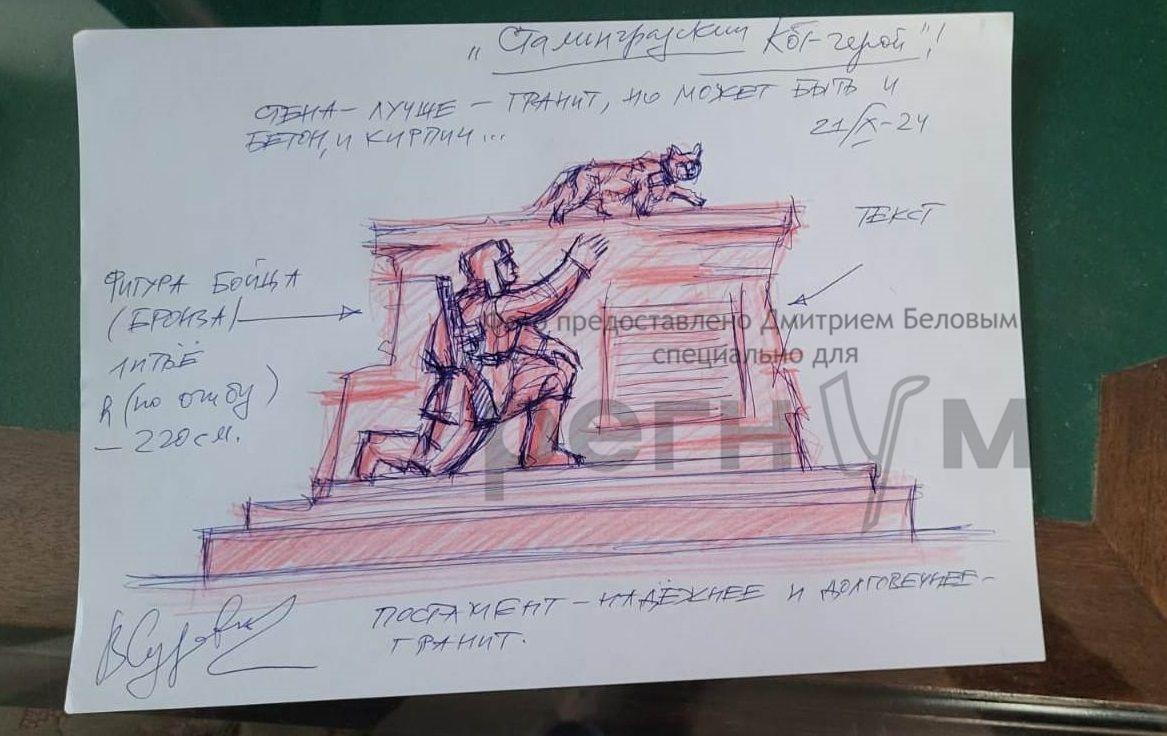 „Сталинградский Кот-герой"!
СТЕНА - ЛУЧШЕ - ГРАНИТ, НО МОЖЕТ БЫТЬ И
БЕТОН, И КИРПИЧ...
21/X-24
ТЕКСТ
ФИГУРА БОЙЦА
(БРОНЗА)
ЛИТЬЁ
h (по
)
- 220 см.
предоставлено Дмитрием Беловым
специально для
регнум
ПОСТАМЕНТ - НАДЁЖНЕЕ И ДОЛГОВЕЧНЕЕ -
ГРАНИТ.